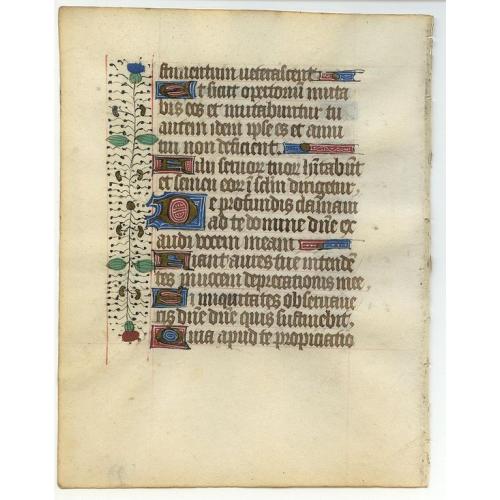 stimentum veterascent
Et sicut opertoriu muta
bis eos et mutabuntur tu
autem idem ipse es et anni
tui non deficient.
Filij servor tuor hitabut
et semen eor i sclm dirigetur,
De profundis clamavi
ad te domine dne ex
audi vocem meam
Fiant aures tue intende
tes in vocem deprecationis mee,
Si iniquitates observave
ris dne dne quis sustinebit,
Quia apud te propiciatio